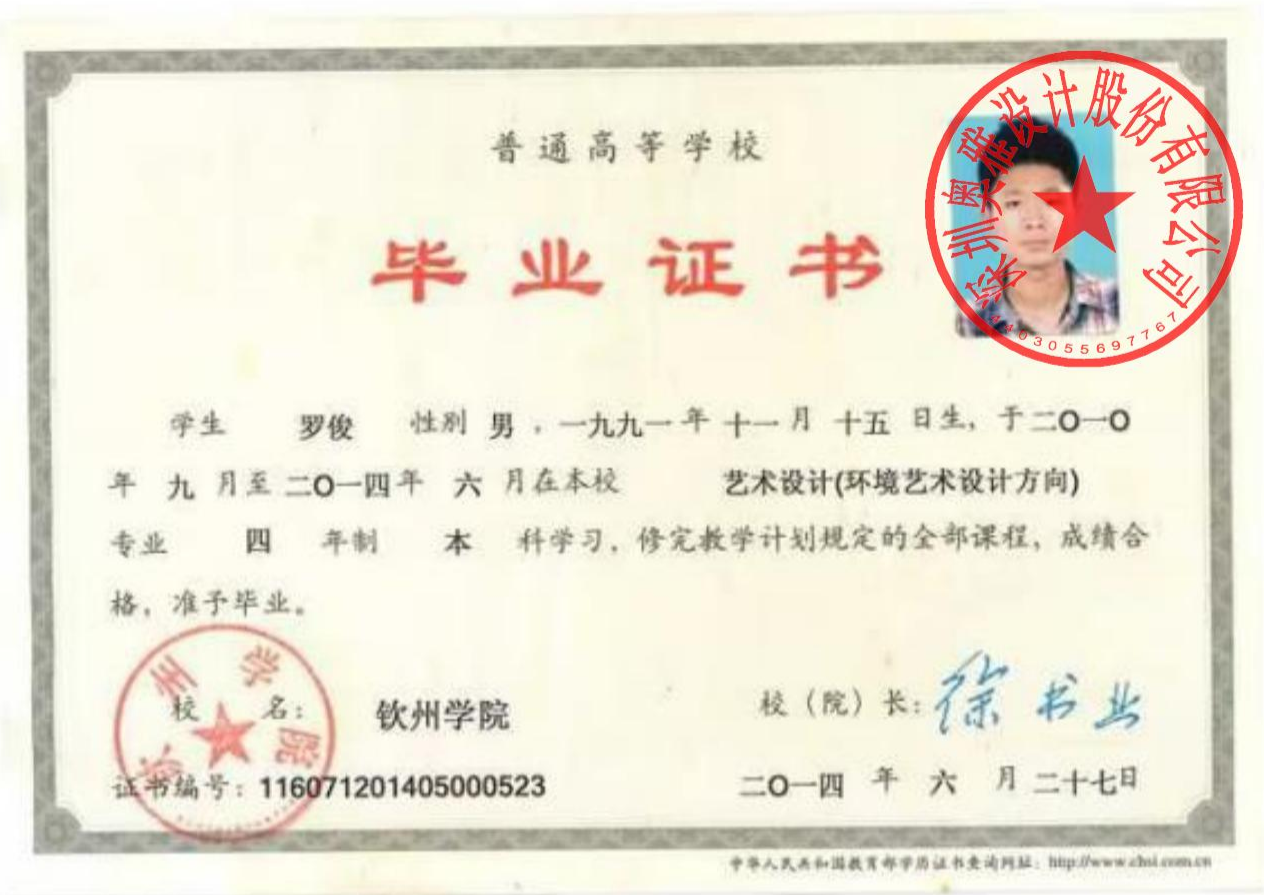 普通高等学校
毕业证书
深圳奥雅设计股份有限公司
4403055697767
学生 罗俊 性别 男，一九九一年 十一月 十五 日生，于二O一O
年 九 月至 二O一四年 六 月在本校 艺术设计(环境艺术设计方向)
专业 四 年制 本 科学习，修完教学计划规定的全部课程，成绩合
格，准予毕业。
钦州学院
校 名： 钦州学院
校（院）长：徐书业
证书编号：116071201405000523
二O一四 年 六 月 二十七日
中华人民共和国教育部学历证书查询网址：http://www.chsi.com.cn